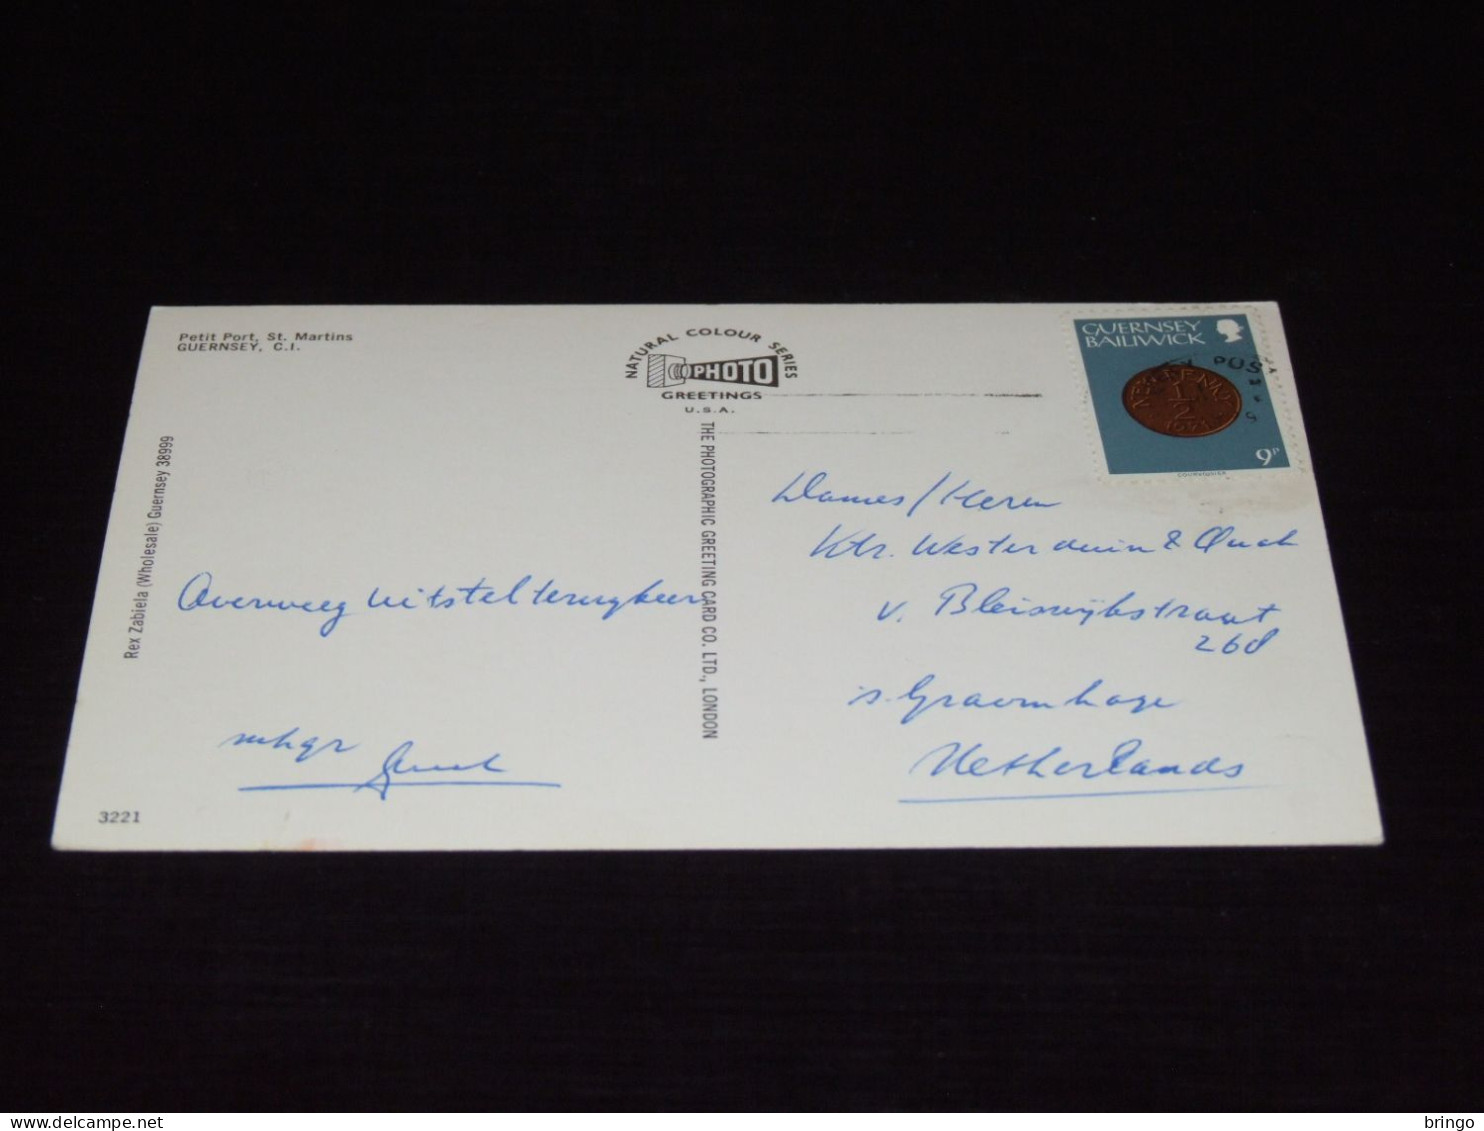 Petit Port, St. Martins
GUERNSEY, C.I.
NATURAL COLOUR SERIES
PHOTO
GREETINGS
U.S.A.
GUERNSEY
BAILIWICK
POS
NEW PENNY
1/2
1971
9P
COURVOISIER
Rex Zabiela (Wholesale) Guernsey 38999
THE PHOTOGRAPHIC GREETING CARD CO. LTD., LONDON
Overweeg uitstel terugkeer
mhgr
3221
Dames/Heren
Ktr. Westerduin &
v. Bleiswijkstraat
268
's Gravenhage
Netherlands
delcampe.net
bringo